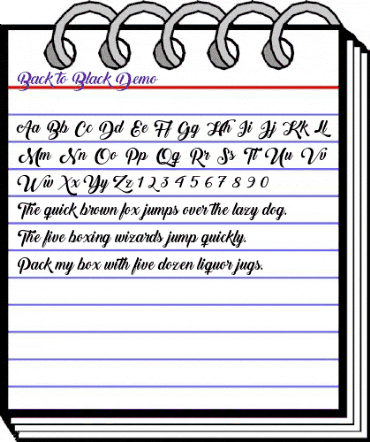 Back to Black Demo
Aa Bb Cc Dd Ee Ff Gg Hh Ii Jj Kk LL
Mm Nn Oo Pp Qq Rr Ss Tt Uu Vv
Ww Xx Yy Zz 1 2 3 4 5 6 7 8 9 0
The quick brown fox jumps over the lazy dog.
The five boxing wizards jump quickly.
Pack my box with five dozen liquor jugs.